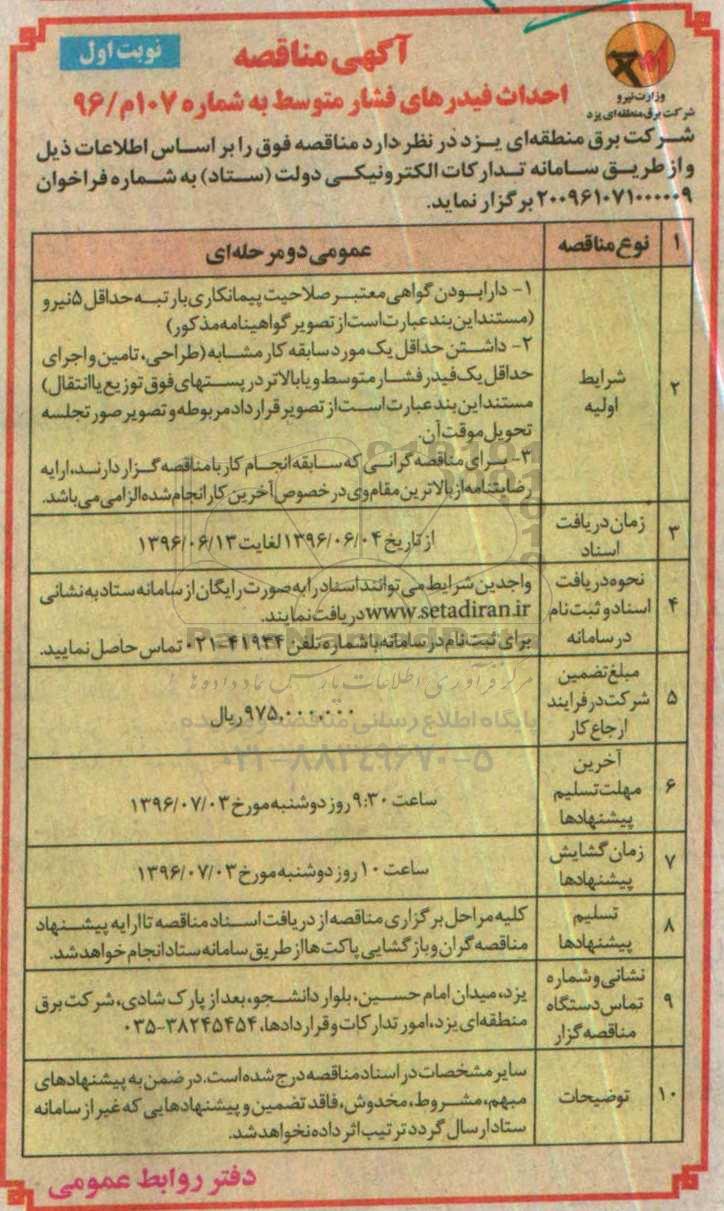 نوبت اول
آگهی مناقصه
وزارت نیرو
شرکت برق منطقه‌ای یزد
احداث فیدرهای فشار متوسط به شماره ۱۰۷م/۹۶
شرکت برق منطقه‌ای یزد در نظر دارد مناقصه فوق را بر اساس اطلاعات ذیل
و از طریق سامانه تدارکات الکترونیکی دولت (ستاد) به شماره فراخوان
۲۰۰۹۶۱۰۷۱۰۰۰۰۰۹ برگزار نماید.
۱ نوع مناقصه عمومی دو مرحله‌ای
۲ شرایط اولیه
۱- دارا بودن گواهی معتبر صلاحیت پیمانکاری با رتبه حداقل ۵ نیرو
(مستند این بند عبارت است از تصویر گواهینامه مذکور)
۲- داشتن حداقل یک مورد سابقه کار مشابه (طراحی، تامین و اجرای
حداقل یک فیدر فشار متوسط و یا بالاتر در پستهای فوق توزیع یا انتقال)
مستند این بند عبارت است از تصویر قرارداد مربوطه و تصویر صورتجلسه
تحویل موقت آن.
۳- برای مناقصه گرانی که سابقه انجام کار با مناقصه گزار دارند، ارایه
رضایتنامه از بالاترین مقام وی در خصوص آخرین کار انجام شده الزامی می باشد.
۳ زمان دریافت اسناد
از تاریخ ۱۳۹۶/۰۶/۰۴ لغایت ۱۳۹۶/۰۶/۱۳
۴ نحوه دریافت اسناد و ثبت نام در سامانه
واجدین شرایط می توانند اسناد را به صورت رایگان از سامانه ستاد به نشانی
www.setadiran.ir دریافت نمایند.
برای ثبت نام در سامانه با شماره تلفن ۴۱۹۳۴-۰۲۱ تماس حاصل نمایید.
۵ مبلغ تضمین شرکت در فرایند ارجاع کار
۹۷۵,۰۰۰,۰۰۰ ریال
۶ آخرین مهلت تسلیم پیشنهادها
ساعت ۹:۳۰ روز دوشنبه مورخ ۱۳۹۶/۰۷/۰۳
۷ زمان گشایش پیشنهادها
ساعت ۱۰ روز دوشنبه مورخ ۱۳۹۶/۰۷/۰۳
۸ تسلیم پیشنهادها
کلیه مراحل برگزاری مناقصه از دریافت اسناد مناقصه تا ارایه پیشنهاد
مناقصه گران و بازگشایی پاکت ها از طریق سامانه ستاد انجام خواهد شد.
۹ نشانی و شماره تماس دستگاه مناقصه گزار
یزد، میدان امام حسین، بلوار دانشجو، بعد از پارک شادی، شرکت برق
منطقه‌ای یزد، امور تدارکات و قراردادها، ۳۸۲۴۵۴۵۴-۰۳۵
۱۰ توضیحات
سایر مشخصات در اسناد مناقصه درج شده است. در ضمن به پیشنهادهای
مبهم، مشروط، مخدوش، فاقد تضمین و پیشنهادهایی که غیر از سامانه
ستاد ارسال گردد ترتیب اثر داده نخواهد شد.
دفتر روابط عمومی
مرکز فرآوری اطلاعات پارس نماد داده ها
پایگاه اطلاع رسانی مناقصه و مزایده
۰۲۱-۸۸۳۴۹۶۷۰-۵